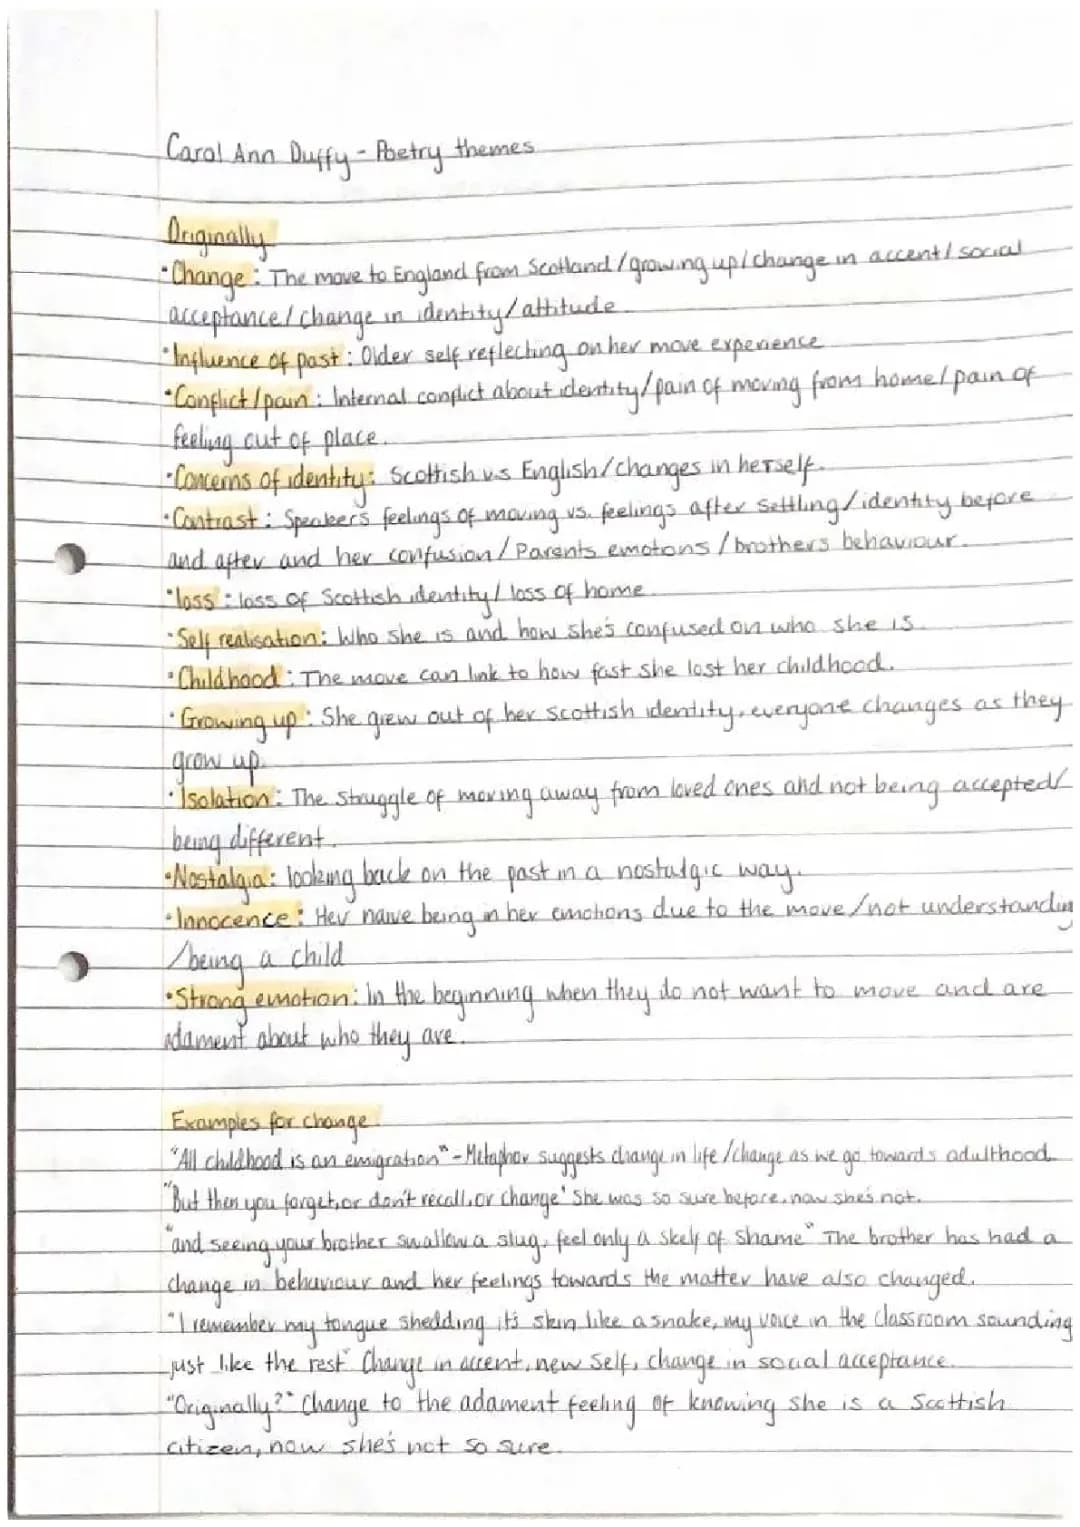 Carol Ann Duffy - Poetry themes
Originally
•Change: The move to England from Scotland/growing up/change in accent/social
acceptance/change in identity/attitude
•Influence of past: Older self reflecting on her move experience
•Conflict/pain: Internal conflict about identity/pain of moving from home/pain of
feeling out of place.
•Concerns of identity: Scottish v.s English/changes in herself.
•Contrast: Speakers feelings of moving vs. feelings after settling/identity before
and after and her confusion/Parents emotons/brothers behaviour.
•loss: loss of Scottish identity/loss of home
•Self realisation: Who she is and how she's confused on who she is.
•Childhood: The move can link to how fast she lost her childhood.
•Growing up: She grew out of her Scottish identity, everyone changes as they
grow up.
•Isolation: The struggle of moving away from loved ones and not being accepted/
being different.
•Nostalgia: looking back on the past in a nostalgic way.
•Innocence: Her naive being in her emotions due to the move/not understandin
/being a child
•Strong emotion: In the beginning when they do not want to move and are
adament about who they are.
Examples for change
"All childhood is an emigration" - Metaphor suggests change in life/change as we go towards adulthood.
"But then you forget, or don't recall, or change' She was so sure before, now she's not.
"and seeing your brother swallow a slug, feel only a skelf of shame" The brother has had a
change in behaviour and her feelings towards the matter have also changed.
"I remember my tongue shedding it's skin like a snake, my voice in the classroom sounding
just like the rest" Change in accent, new self, change in social acceptance.
"Originally?" Change to the adament feeling of knowing she is a Scottish
citizen, now she's not so sure.